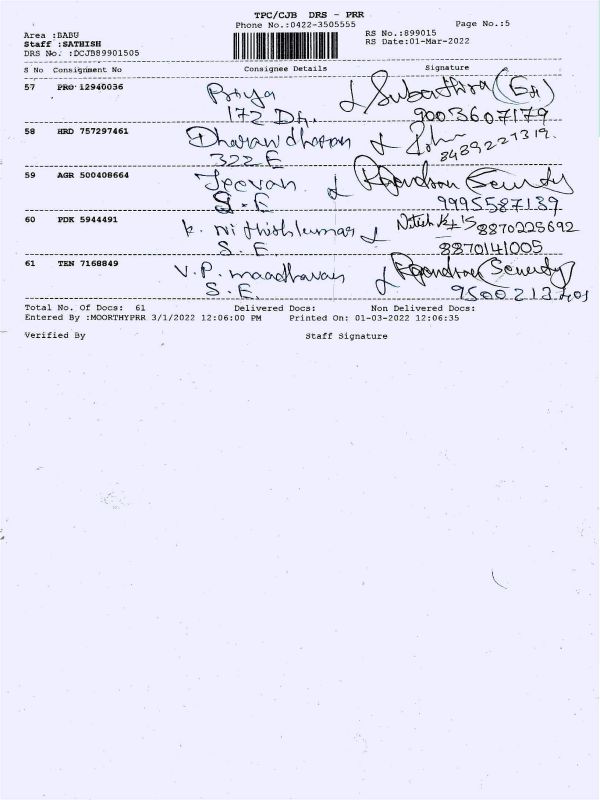 TPC/CJB DRS - PRR
Phone No.:0422-3505555 Page No.:5
Area :BABU RS No.:899015
Staff :SATHISH RS Date:01-Mar-2022
DRS No. :DCJB89901505
S No Consignment No Consignee Details Signature
57 PRO 12940036 Priya Subathira
172 Dr. 9003607179
58 HRD 757297461 Dharanidharan
322 E 8489221319.
59 AGR 500408664 Jeevan. Rajendran Security
S.E 9995587139
60 PDK 5944491 k. Nithishkumar Nitish 8870225692
S.E. 8870141005
61 TEN 7168849 V.P. maadhavan Rajendran Security
S.E.
Total No. Of Docs: 61 Delivered Docs: Non Delivered Docs:
Entered By :MOORTHYPRR 3/1/2022 12:06:00 PM Printed On: 01-03-2022 12:06:35
Verified By Staff Signature